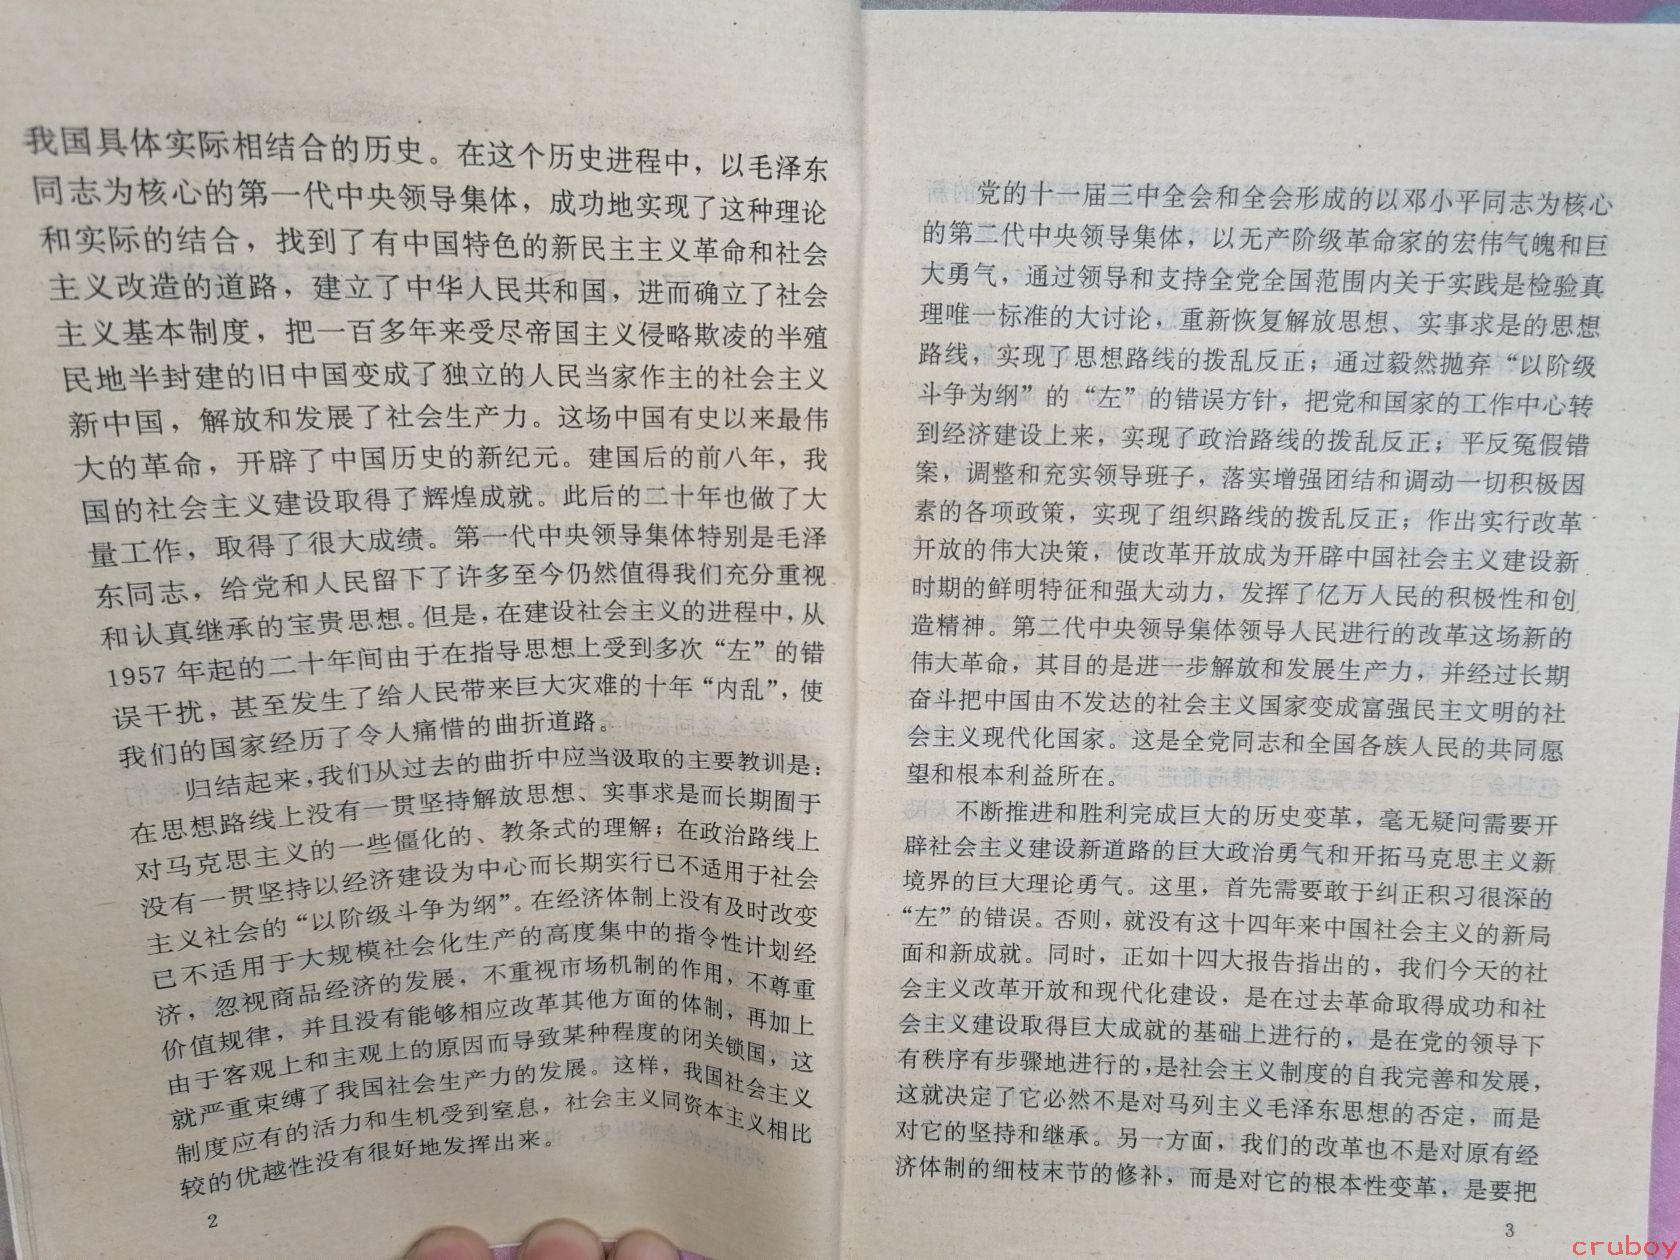 我国具体实际相结合的历史。在这个历史进程中，以毛泽东
同志为核心的第一代中央领导集体，成功地实现了这种理论
和实际的结合，找到了有中国特色的新民主主义革命和社会
主义改造的道路，建立了中华人民共和国，进而确立了社会
主义基本制度，把一百多年来受尽帝国主义侵略欺凌的半殖
民地半封建的旧中国变成了独立的人民当家作主的社会主义
新中国，解放和发展了社会生产力。这场中国有史以来最伟
大的革命，开辟了中国历史的新纪元。建国后的前八年，我
国的社会主义建设取得了辉煌成就。此后的二十年也做了大
量工作，取得了很大成绩。第一代中央领导集体特别是毛泽
东同志，给党和人民留下了许多至今仍然值得我们充分重视
和认真继承的宝贵思想。但是，在建设社会主义的进程中，从
1957年起的二十年间由于在指导思想上受到多次“左”的错
误干扰，甚至发生了给人民带来巨大灾难的十年“内乱”，使
我们的国家经历了令人痛惜的曲折道路。
归结起来，我们从过去的曲折中应当汲取的主要教训是：
在思想路线上没有一贯坚持解放思想、实事求是而长期囿于
对马克思主义的一些僵化的、教条式的理解；在政治路线上
没有一贯坚持以经济建设为中心而长期实行已不适用于社会
主义社会的“以阶级斗争为纲”。在经济体制上没有及时改变
已不适用于大规模社会化生产的高度集中的指令性计划经
济，忽视商品经济的发展，不重视市场机制的作用，不尊重
价值规律，并且没有能够相应改革其他方面的体制，再加上
由于客观上和主观上的原因而导致某种程度的闭关锁国，这
就严重束缚了我国社会生产力的发展。这样，我国社会主义
制度应有的活力和生机受到窒息，社会主义同资本主义相比
较的优越性没有很好地发挥出来。
2
党的十一届三中全会和全会形成的以邓小平同志为核心
的第二代中央领导集体，以无产阶级革命家的宏伟气魄和巨
大勇气，通过领导和支持全党全国范围内关于实践是检验真
理唯一标准的大讨论，重新恢复解放思想、实事求是的思想
路线，实现了思想路线的拨乱反正；通过毅然抛弃“以阶级
斗争为纲”的“左”的错误方针，把党和国家的工作中心转
到经济建设上来，实现了政治路线的拨乱反正；平反冤假错
案，调整和充实领导班子，落实增强团结和调动一切积极因
素的各项政策，实现了组织路线的拨乱反正；作出实行改革
开放的伟大决策，使改革开放成为开辟中国社会主义建设新
时期的鲜明特征和强大动力，发挥了亿万人民的积极性和创
造精神。第二代中央领导集体领导人民进行的改革这场新的
伟大革命，其目的是进一步解放和发展生产力，并经过长期
奋斗把中国由不发达的社会主义国家变成富强民主文明的社
会主义现代化国家。这是全党同志和全国各族人民的共同愿
望和根本利益所在。
不断推进和胜利完成巨大的历史变革，毫无疑问需要开
辟社会主义建设新道路的巨大政治勇气和开拓马克思主义新
境界的巨大理论勇气。这里，首先需要敢于纠正积习很深的
“左”的错误。否则，就没有这十四年来中国社会主义的新局
面和新成就。同时，正如十四大报告指出的，我们今天的社
会主义改革开放和现代化建设，是在过去革命取得成功和社
会主义建设取得巨大成就的基础上进行的，是在党的领导下
有秩序有步骤地进行的，是社会主义制度的自我完善和发展，
这就决定了它必然不是对马列主义毛泽东思想的否定，而是
对它的坚持和继承。另一方面，我们的改革也不是对原有经
济体制的细枝末节的修补，而是对它的根本性变革，是要把
3
cruboy